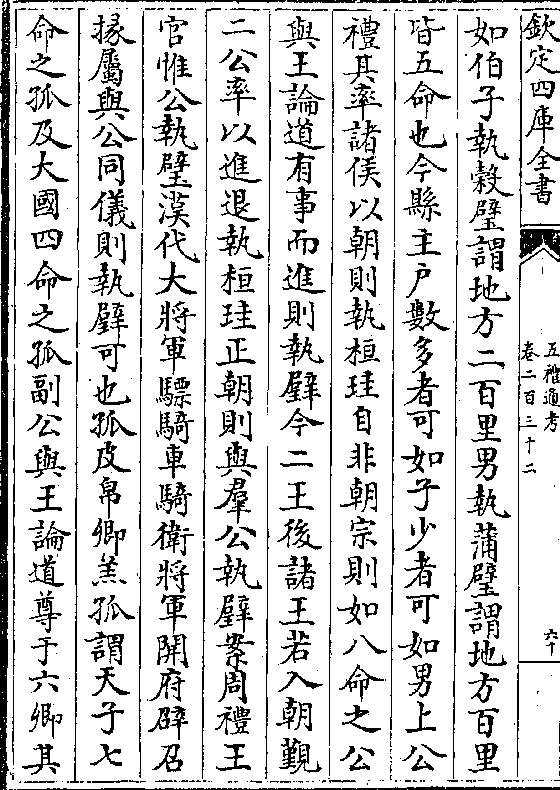 欽定四庫全書
五禮通考
卷二百三十二
六十
如伯子執穀璧謂地方二百里男執蒲璧謂地方百里
皆五命也今縣主户數多者可如子少者可如男上公
禮其率諸侯以朝則執桓珪自非朝宗則如八命之公
與王論道有事而進則執璧今二王後諸王若入朝覲
二公率以進退執桓珪正朝則與羣公執璧案周禮王
官惟公執璧漢代大將軍驃騎車騎衛將軍開府辟召
掾屬與公同儀則執璧可也孤皮帛卿羔孤謂天子七
命之孤及大國四命之孤副公與王論道尊于六卿其